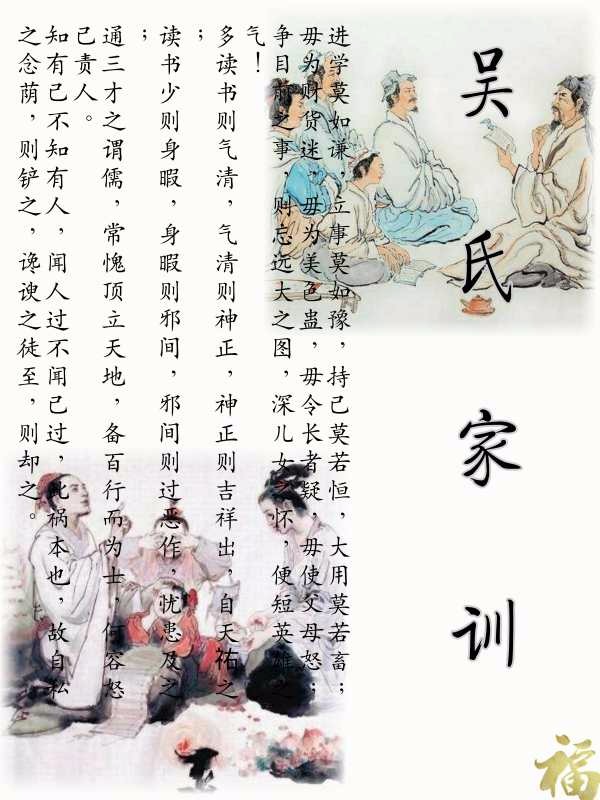 吴氏家训
进学莫如谦，立事莫如豫，持己莫若恒，大用莫若畜；
毋为财货迷，毋为美色蛊，毋令长者疑，毋使父母怒；
争目前之事，则忘远大之图，深儿女之怀，便短英雄之
气！
多读书则气清，气清则神正，神正则吉祥出，自天祐之
；
读书少则身暇，身暇则邪间，邪间则过恶作，忧患及之
；
通三才之谓儒，常愧顶立天地，备百行而为士，何容怒
己责人。
知有己不知有人，闻人过不闻己过，此祸本也，故自私
之念荫，则铲之，谗谀之徒至，则却之。
福